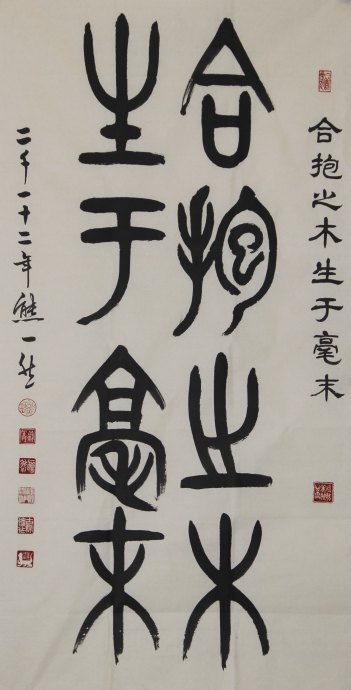 合抱之木生于毫末
合抱之木
生于毫末
二千一十二年熊一然